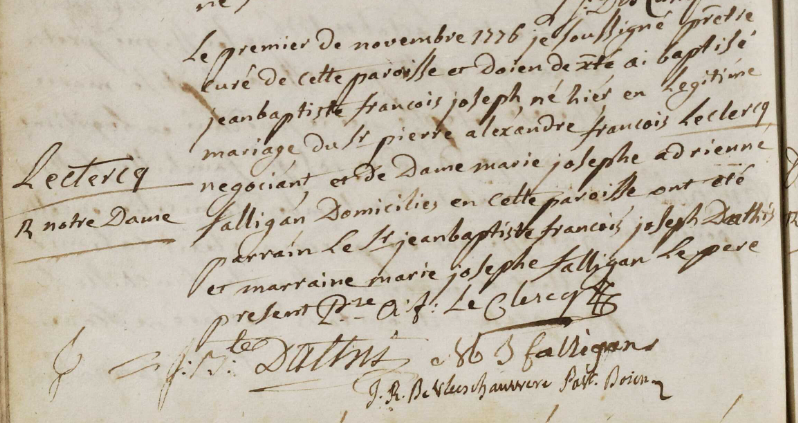 Le premier de novembre 1776 je soussigné prêtre
curé de cette paroisse et doien de xté ai baptisé
jeanbaptiste francois joseph né hier en Legitime
mariage du Sr pierre alexandre francois Leclercq
negociant et de Dame marie josephe adrienne
falligan Domicilies en cette paroisse ont été
parrain Le Sr jeanbaptiste francois joseph Dathis
et marraine marie josephe falligan Le pere
present Pre. a. f. Le Clercq
Leclercq
R notre Dame
j: B:te Dathis M J falligan
J. R. De Vleeschauwere Past. Doien